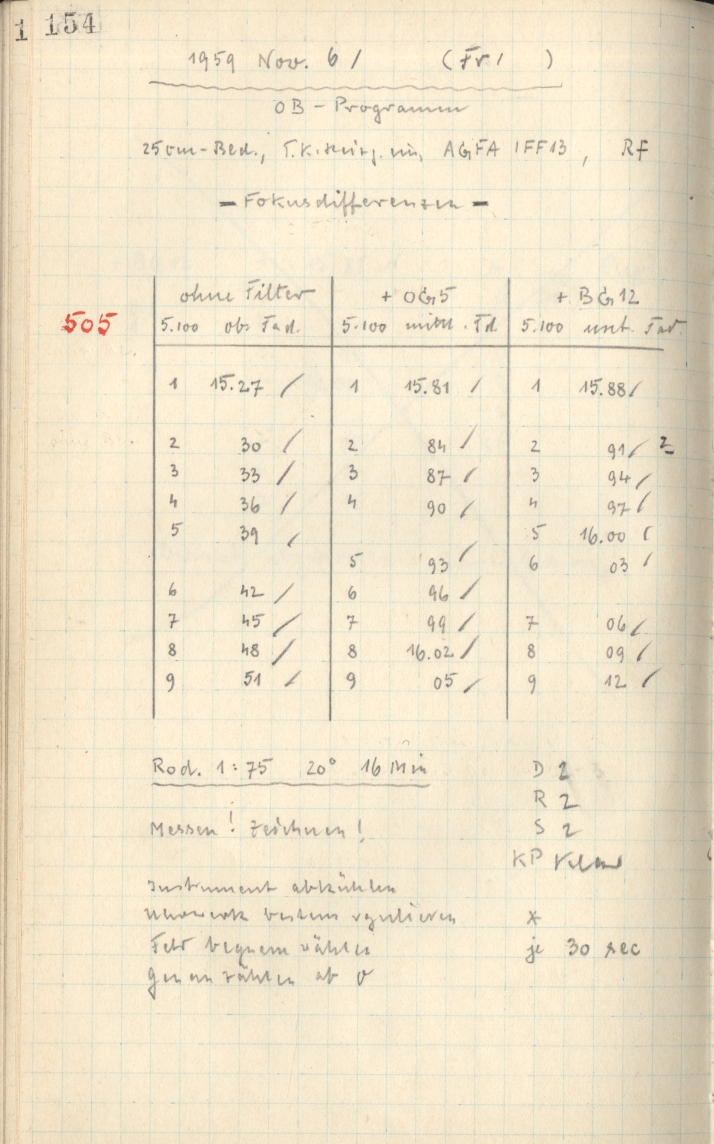 1 154
1959 Nov. 6 / (Fr / )
OB - Programm
25 cm - Bed., AGFA IFF13, Rf
- Fokusdifferenzen -
ohne Filter + OG5 + BG12
505
5.100 obs Fad. 5.100 mittl. Fd. 5.100 unt. Fad.
1 15.27 / 1 15.81 / 1 15.88 /
2 30 / 2 84 / 2 91 / 2
3 33 / 3 87 / 3 94 /
4 36 / 4 90 / 4 97 /
5 39 / 5 16.00 /
5 93 / 6 03 /
6 42 / 6 96 /
7 45 / 7 99 / 7 06 /
8 48 / 8 16.02 / 8 09 /
9 51 / 9 05 / 9 12 /
Rod. 1:75 20° 16 Min D 2
R 2
Messen! Zeichnen! S 2
KP
Instrument abkühlen
Uhrwerk bestens regulieren *
Feld bequem wählen je 30 sec
Genau zählen ab 0